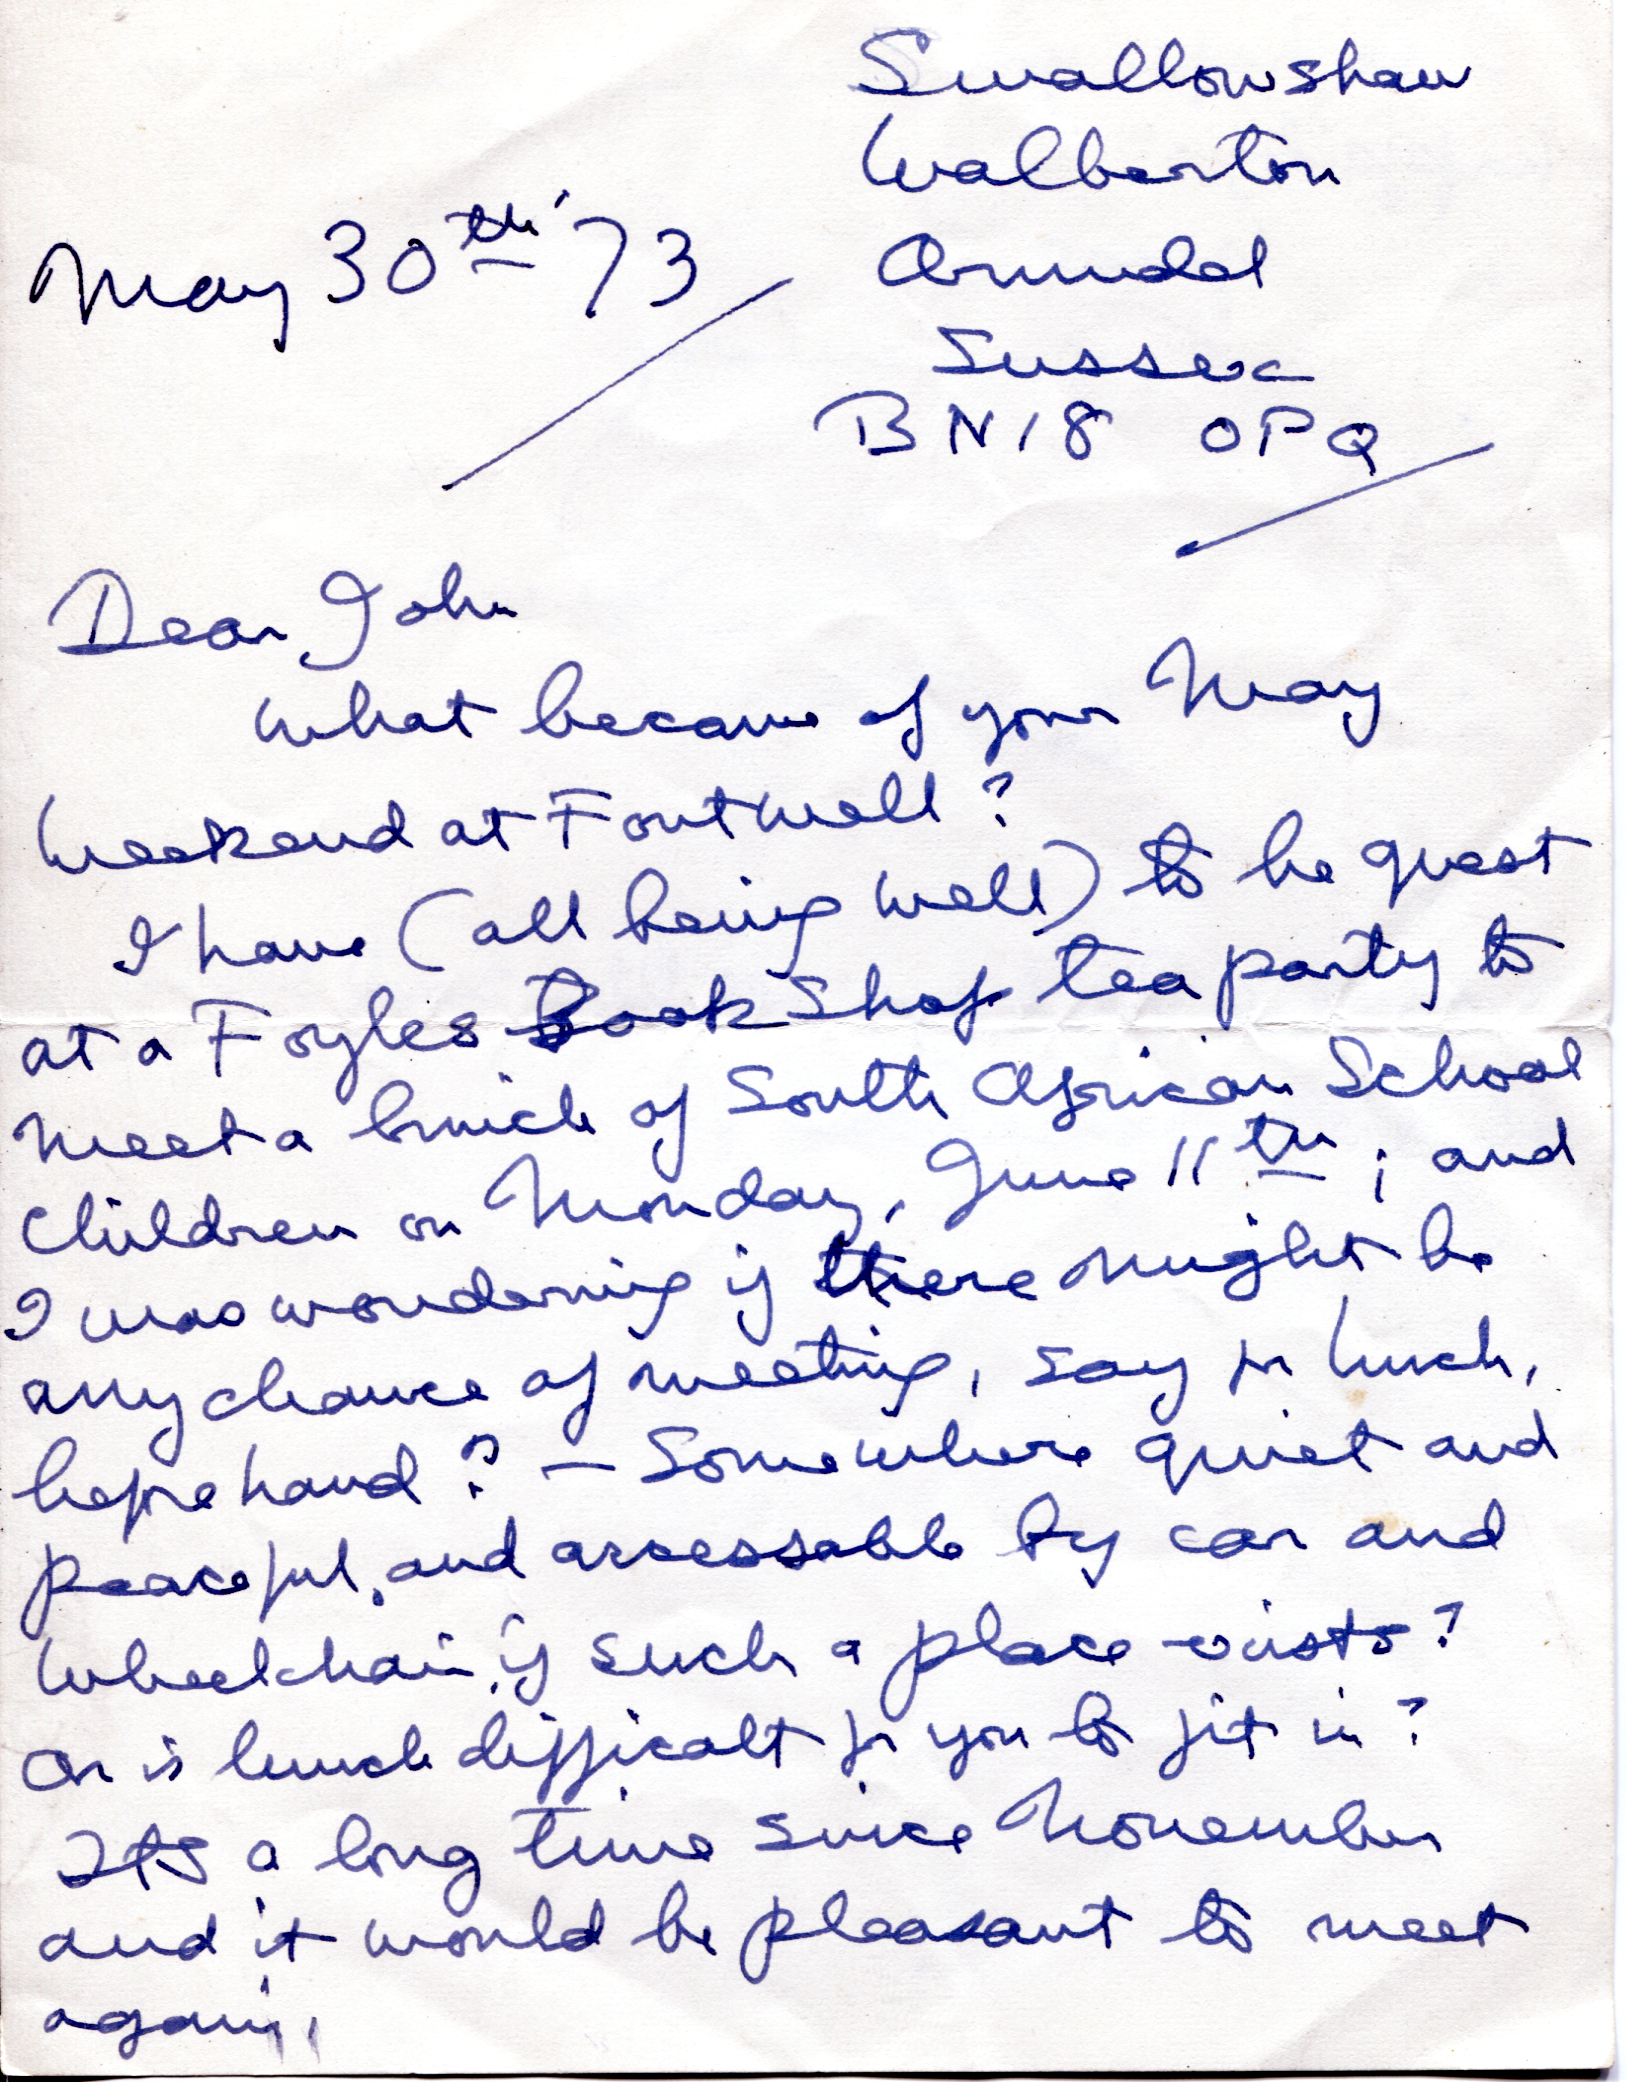 Swallowshaw
Walberton
Arundel
Sussex
BN18 0PQ
May 30th '73
Dear John
What became of your May
Weekend at Fontwell?
I have (all being well) to be guest
at a Foyles Book Shop tea party to
meet a bunch of South African School
Children on Monday, June 11th; and
I was wondering if there might be
any chance of meeting, say for lunch,
beforehand? – Somewhere quiet and
peaceful, and accessable by car and
Wheelchair, if such a place exists?
Or is lunch difficalt for you to fit in?
Its a long time since November
and it would be pleasant to meet
again,